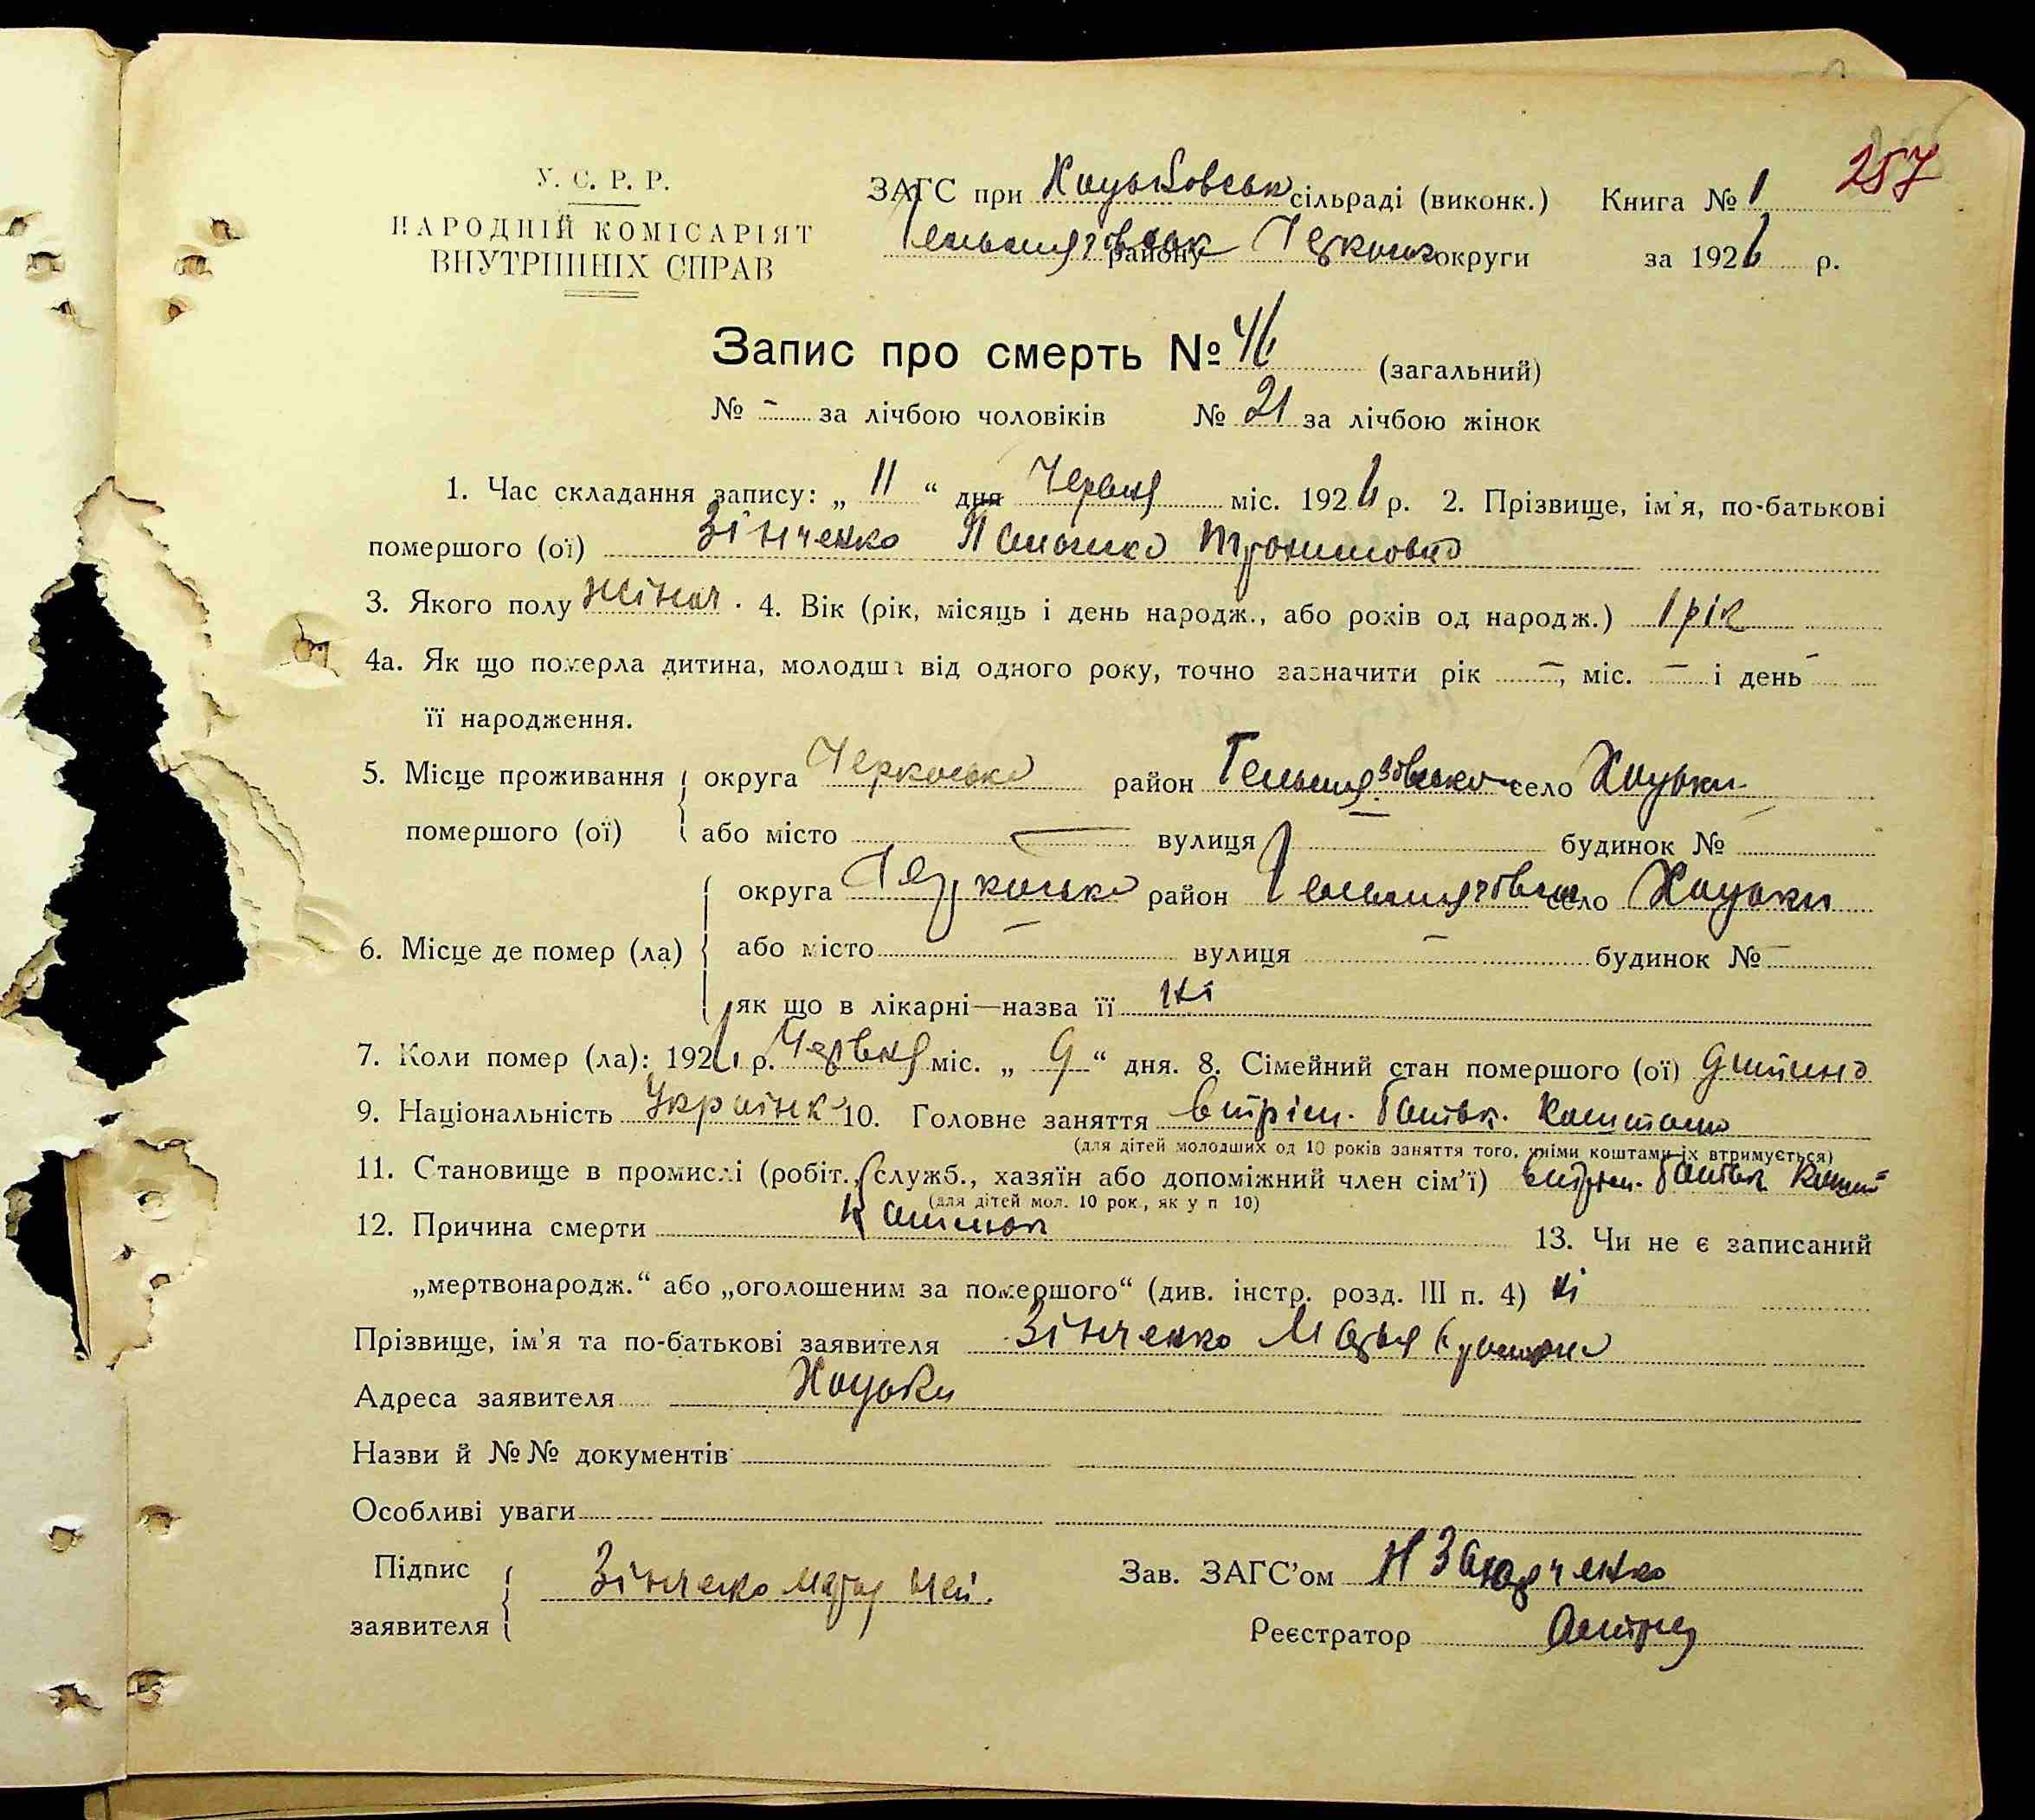 257
У. С. Р. Р.
НАРОДНІЙ КОМІСАРІЯТ
ВНУТРІШНІХ СПРАВ
ЗАГС при Хоцьковськ сільраді (виконк.) Книга № 1
району округи за 1926 р.
Запис про смерть № 46 (загальний)
№ - за лічбою чоловіків № 21 за лічбою жінок
1. Час складання запису: „ 11 “ дня Червня міс. 1926 р. 2. Прізвище, ім'я, по-батькові
помершого (ої) Зінченко
3. Якого полу жіноч. 4. Вік (рік, місяць і день народж., або років од народж.) 1 рік
4а. Як що померла дитина, молодша від одного року, точно зазначити рік –, міс. – і день –
її народження.
5. Місце проживання округа Черкаська район Гельмязовська село Хоцьки
помершого (ої) або місто — вулиця будинок №
округа Черкаська район Гельмязовськ село Хоцьки
6. Місце де помер (ла) або місто — вулиця — будинок № —
як що в лікарні—назва її ні
7. Коли помер (ла): 1926 р. Червня міс. „ 9 “ дня. 8. Сімейний стан помершого (ої) дитина
9. Національність Українк 10. Головне заняття втрим. батьк. коштами
(для дітей молодших од 10 років заняття того, чиїми коштами їх втримується)
11. Становище в промислі (робіт., служб., хазяїн або допоміжний член сім'ї) втрим. батьк
(для дітей мол. 10 рок., як у п 10)
12. Причина смерти 13. Чи не є записаний
„мертвонародж.“ або „оголошеним за помершого“ (див. інстр. розд. III п. 4) ні
Прізвище, ім'я та по-батькові заявителя Зінченко Марія
Адреса заявителя Хоцьки
Назви й №№ документів
Особливі уваги
Підпис
заявителя Зінченко
Зав. ЗАГС'ом
Реєстратор